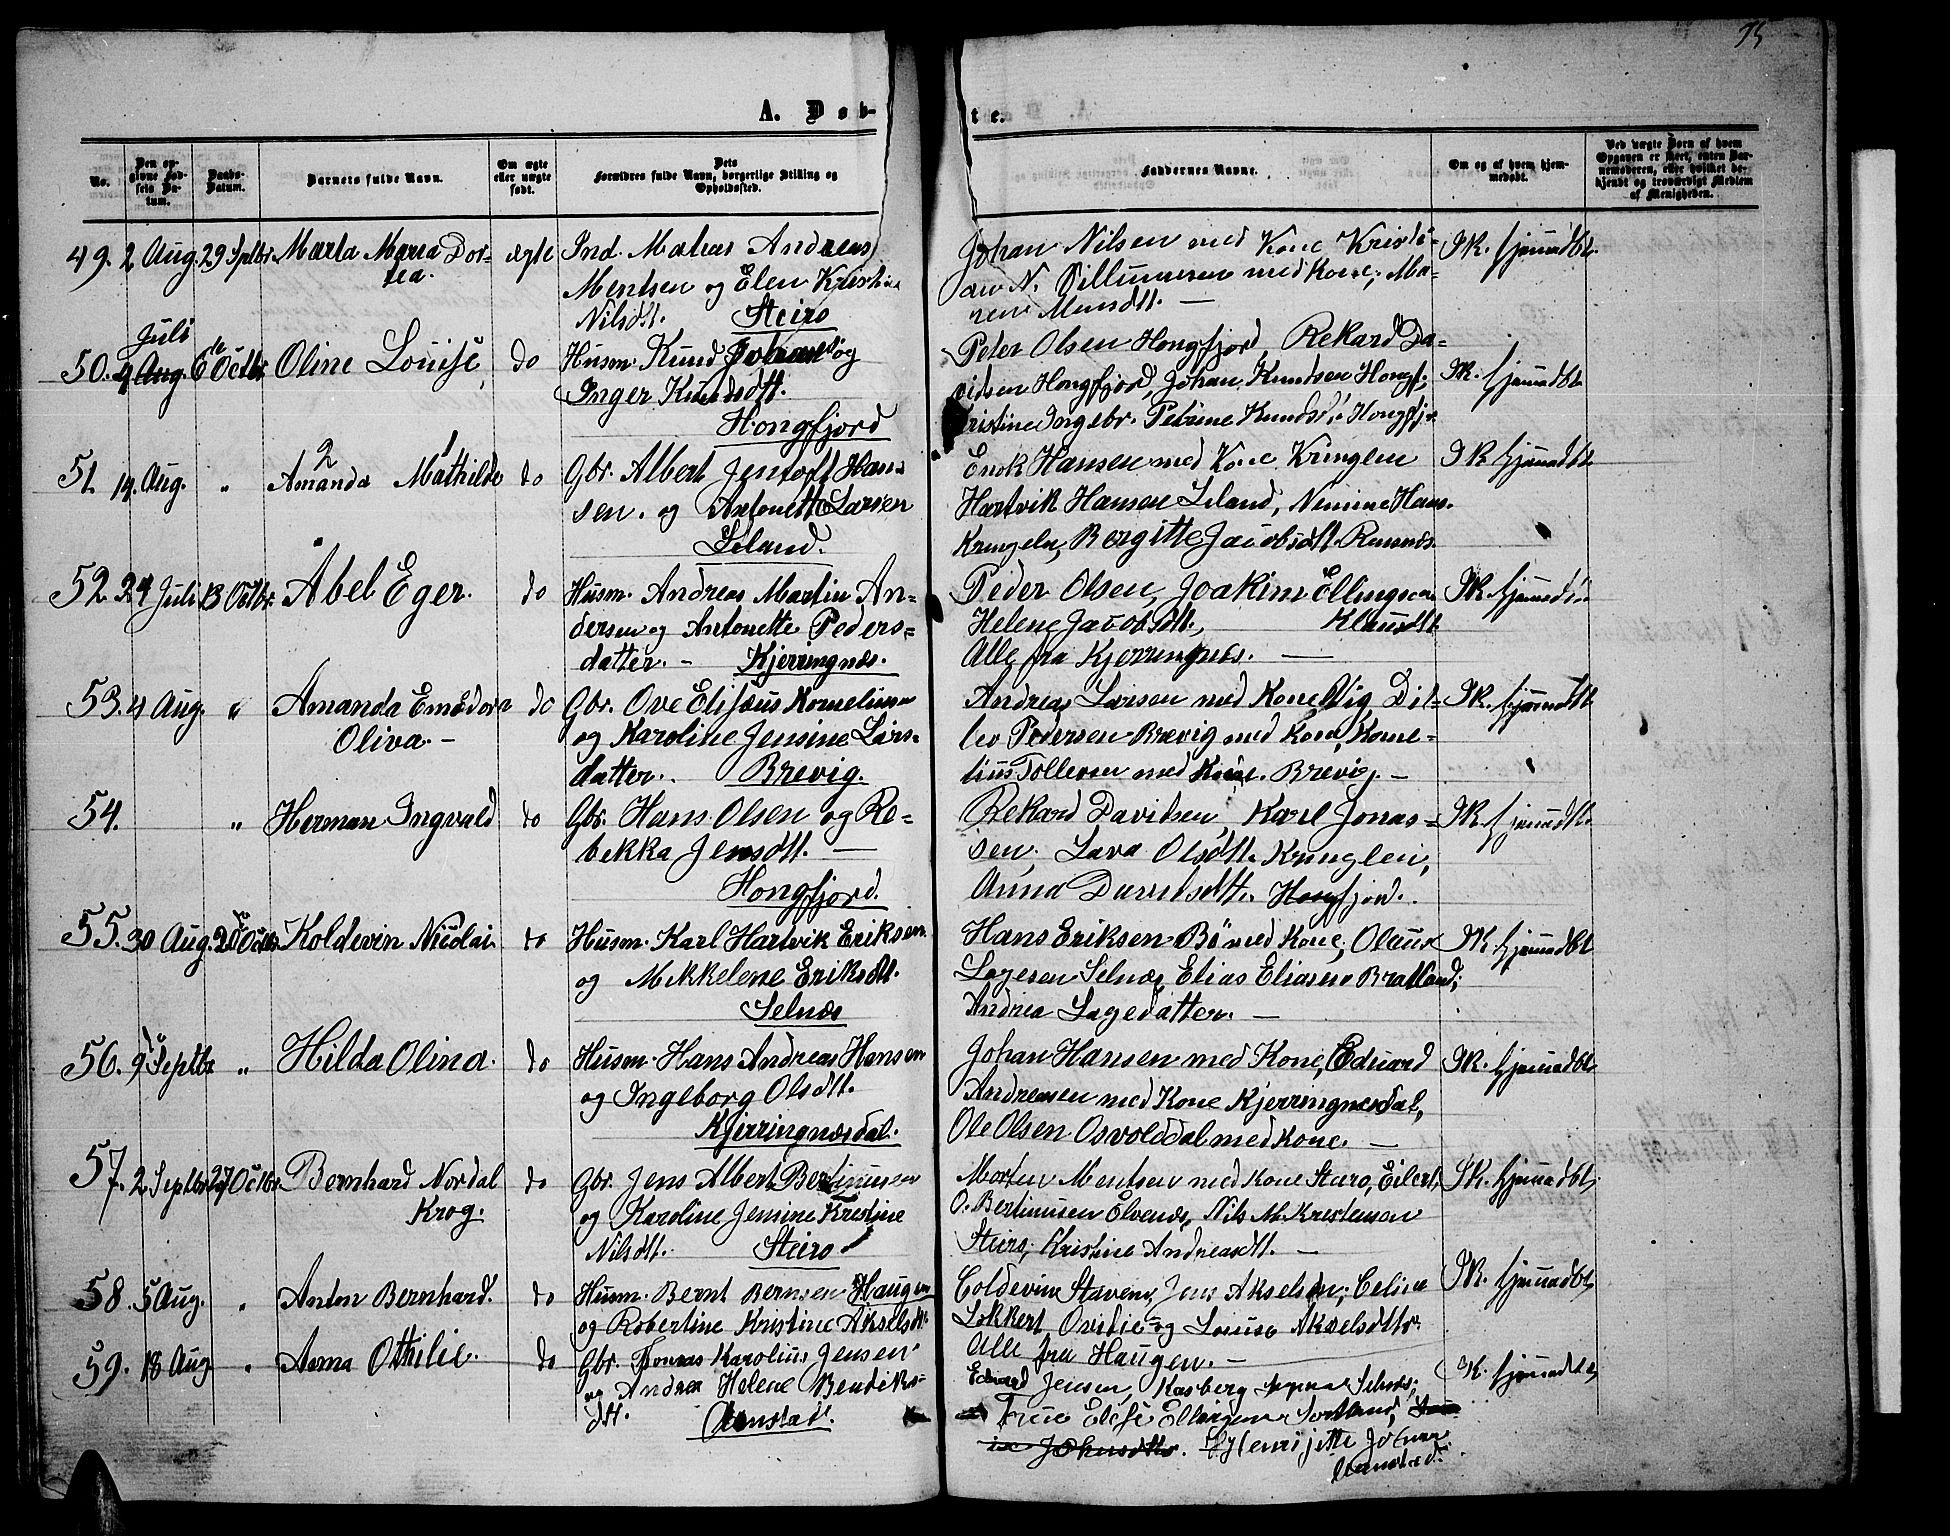 95
A. Døb-
te.
No.
Den op-
givne Fød-
sels Da-
tum.
Daabs-
Datum.
Barnets fulde Navn.
Om ægte
eller uægte
født.
Dets
Forældres fulde Navn, borgerlige Stilling og
Opholdssted.
Faddernes Navne.
Om og af hvem hjem-
medøbt.
Ved uægte Børn af hvem
Opgaven er skeet, enten Bar-
nemoderen, eller hvilket be-
kjendt og troværdigt Medlem
af Menigheden.
49. 2 Aug. 29 Septbr Marta Maria Dor-
tea.
ægte
Ind. Matias Andreas
Mentsen og Elen Kristine
Nilsdtt. Steiro
Johan Nilsen med Kone Kristi-
an N. med Kone, Ma-
ren Mundtt. —
IK. hjemmedbt.
Juli
50. 4 Aug. 6te Octbr Oline Louise do
Husm. Knud og
Inger Knudsdtt.
Hongfjord
Peter Olsen Hongfjord, Rekard Da-
vidsen Hongfjord, Johan Knudsen Hongf.
Kristine Ingebr. Petrine Knudsdtt Hongfj.
IK. hjemmedbt
51. 14. Aug. " 2 Amanda 1 Mathilde do
Gbr. Albert Jentoft Han-
sen. og Antonette Larsen
Leland.
Enok Hansen med Kone Kringlen
Hartvik Hansen Leland, Nimine Hans.
Kringeln, Bergitte Jacobsdtt. Remnes.
IK hjemmedbt.
52. 24 Juli 13 Octbr. Abel Eger. do
Husm. Andreas Martin An-
dersen og Antonette Peders-
datter. – Kjerringnæs.
Peder Olsen, Joakim Ellingsen
Helene Jacobsdtt., Klausdtt
Alle fra Kjerringnæs. —
IK. hjemmedbt
53. 4 Aug. " Amanda Emedora
Oliva. – do
Gbr. Ove Elisæus Kornelius
og Karoline Jensine Lars-
datter. Brevig.
Andreas Larsen med Kone Vig, Dit-
lev Pedersen Brevig med Kone, Korne-
lius Tollevsen med Kone. Brevig. –
IK. hjemmedbt
54. " Herman Ingvald do
Gbr. Hans Olsen og Re-
bekka Jensdtt. —
Hongfjord.
Rekard Davidsen, Karl Jonas-
sen, Lava Olsdtt. Kringlen,
Anna Davidsdtt. Hongfjord.
IK. hjemmedbt.
55. 30 Aug. 20de Octbr Koldevin Nicolai. do
Husm. Karl Hartvik Eriksen
og Mekkelene Eriksdtt.
Selnæs
Hans Eriksen Bø med Kone, Olaus
Lagesen Selnæs, Elias Eliasen Bratland,
Andrea Lagedatter. —
IK. hjemmedbt
56. 9de Septbr " Hilda Olina. do
Husm. Hans Andreas Hansen
og Ingeborg Olsdtt.
Kjerringnæsdal.
Johan Hansen med Kone, Eduard
Andreasen med Kone Kjerringnæsdal,
Ole Olsen Osvolddal med Kone. —
IK. hjemmedbt.
57. 2 Septbr 27 Octbr. Bernhard Nordal
Krog. do
Gbr. Jens Albert Bertinusen
og Karoline Jensine Kristine
Nilsdtt. Steiro
Morten Mentsen med Kone Steiro, Eilert
O. Bertinusen Elvenes, Nils M. Kristensen
Steiro, Kristine Andreasdtt. —
IK. hjemmedbt.
58. 5 Aug. " Anton Bernhard. do
Husm. Bernt Berntsen Haugen
og Robertine Kristine Akselsdtt.
Coldevin Stavens, Jens Akselsen, Celine
Lokkert og Louise Akselsdttr
Alle fra Haugen. —
IK. hjemmedbt.
59. 18 Aug " Anna Othilie. do
Gbr. Tomas Karolius Jensen
og Andrea Helene Bendiks-
dtt.
Edvard Jensen, Kasberg Selnæs,
Frue Elise Ellingsen Sortland,
Johnsdttr. Henrijette
IK. hjemmedbt.